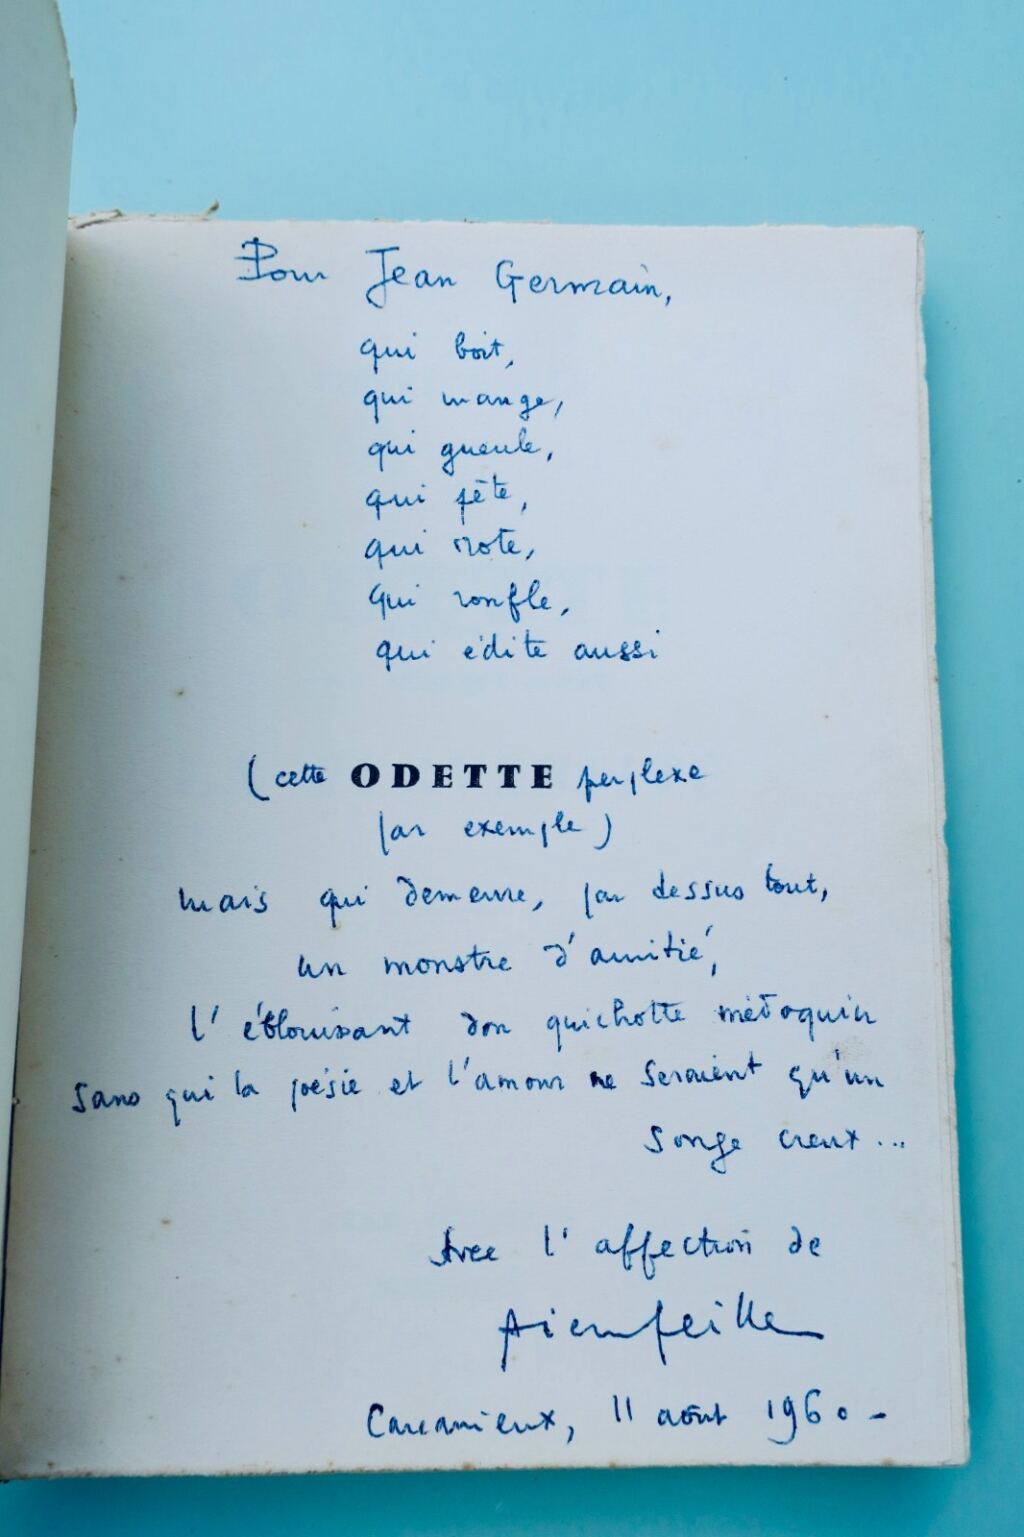 Pour Jean Germain,
qui boit,
qui mange,
qui gueule,
qui pète,
qui rote,
qui ronfle,
qui édite aussi
(cette ODETTE perplexe
par exemple)
mais qui demeure, par dessus tout,
un monstre d'amitié,
l'éblouissant don quichotte médoquin
sans qui la poésie et l'amour ne seraient qu'un
songe creux...
Avec l'affection de
Carcanieux, 11 août 1960 -